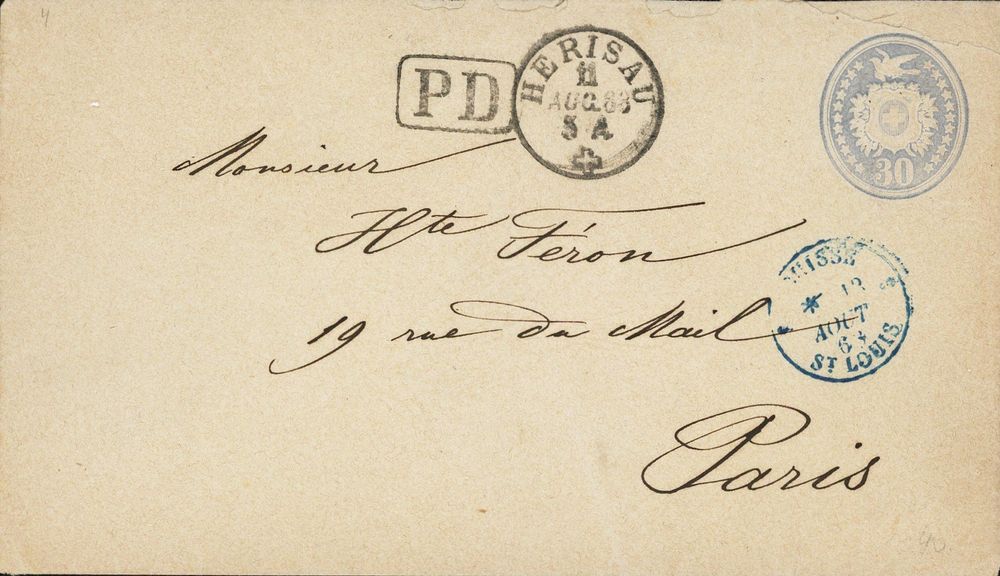 4
PD
HERISAU
11
AUG. 68
5 A
30
Monsieur
Hte Féron
19 rue du Mail
Paris
SUISSE
AOUT
ST LOUIS